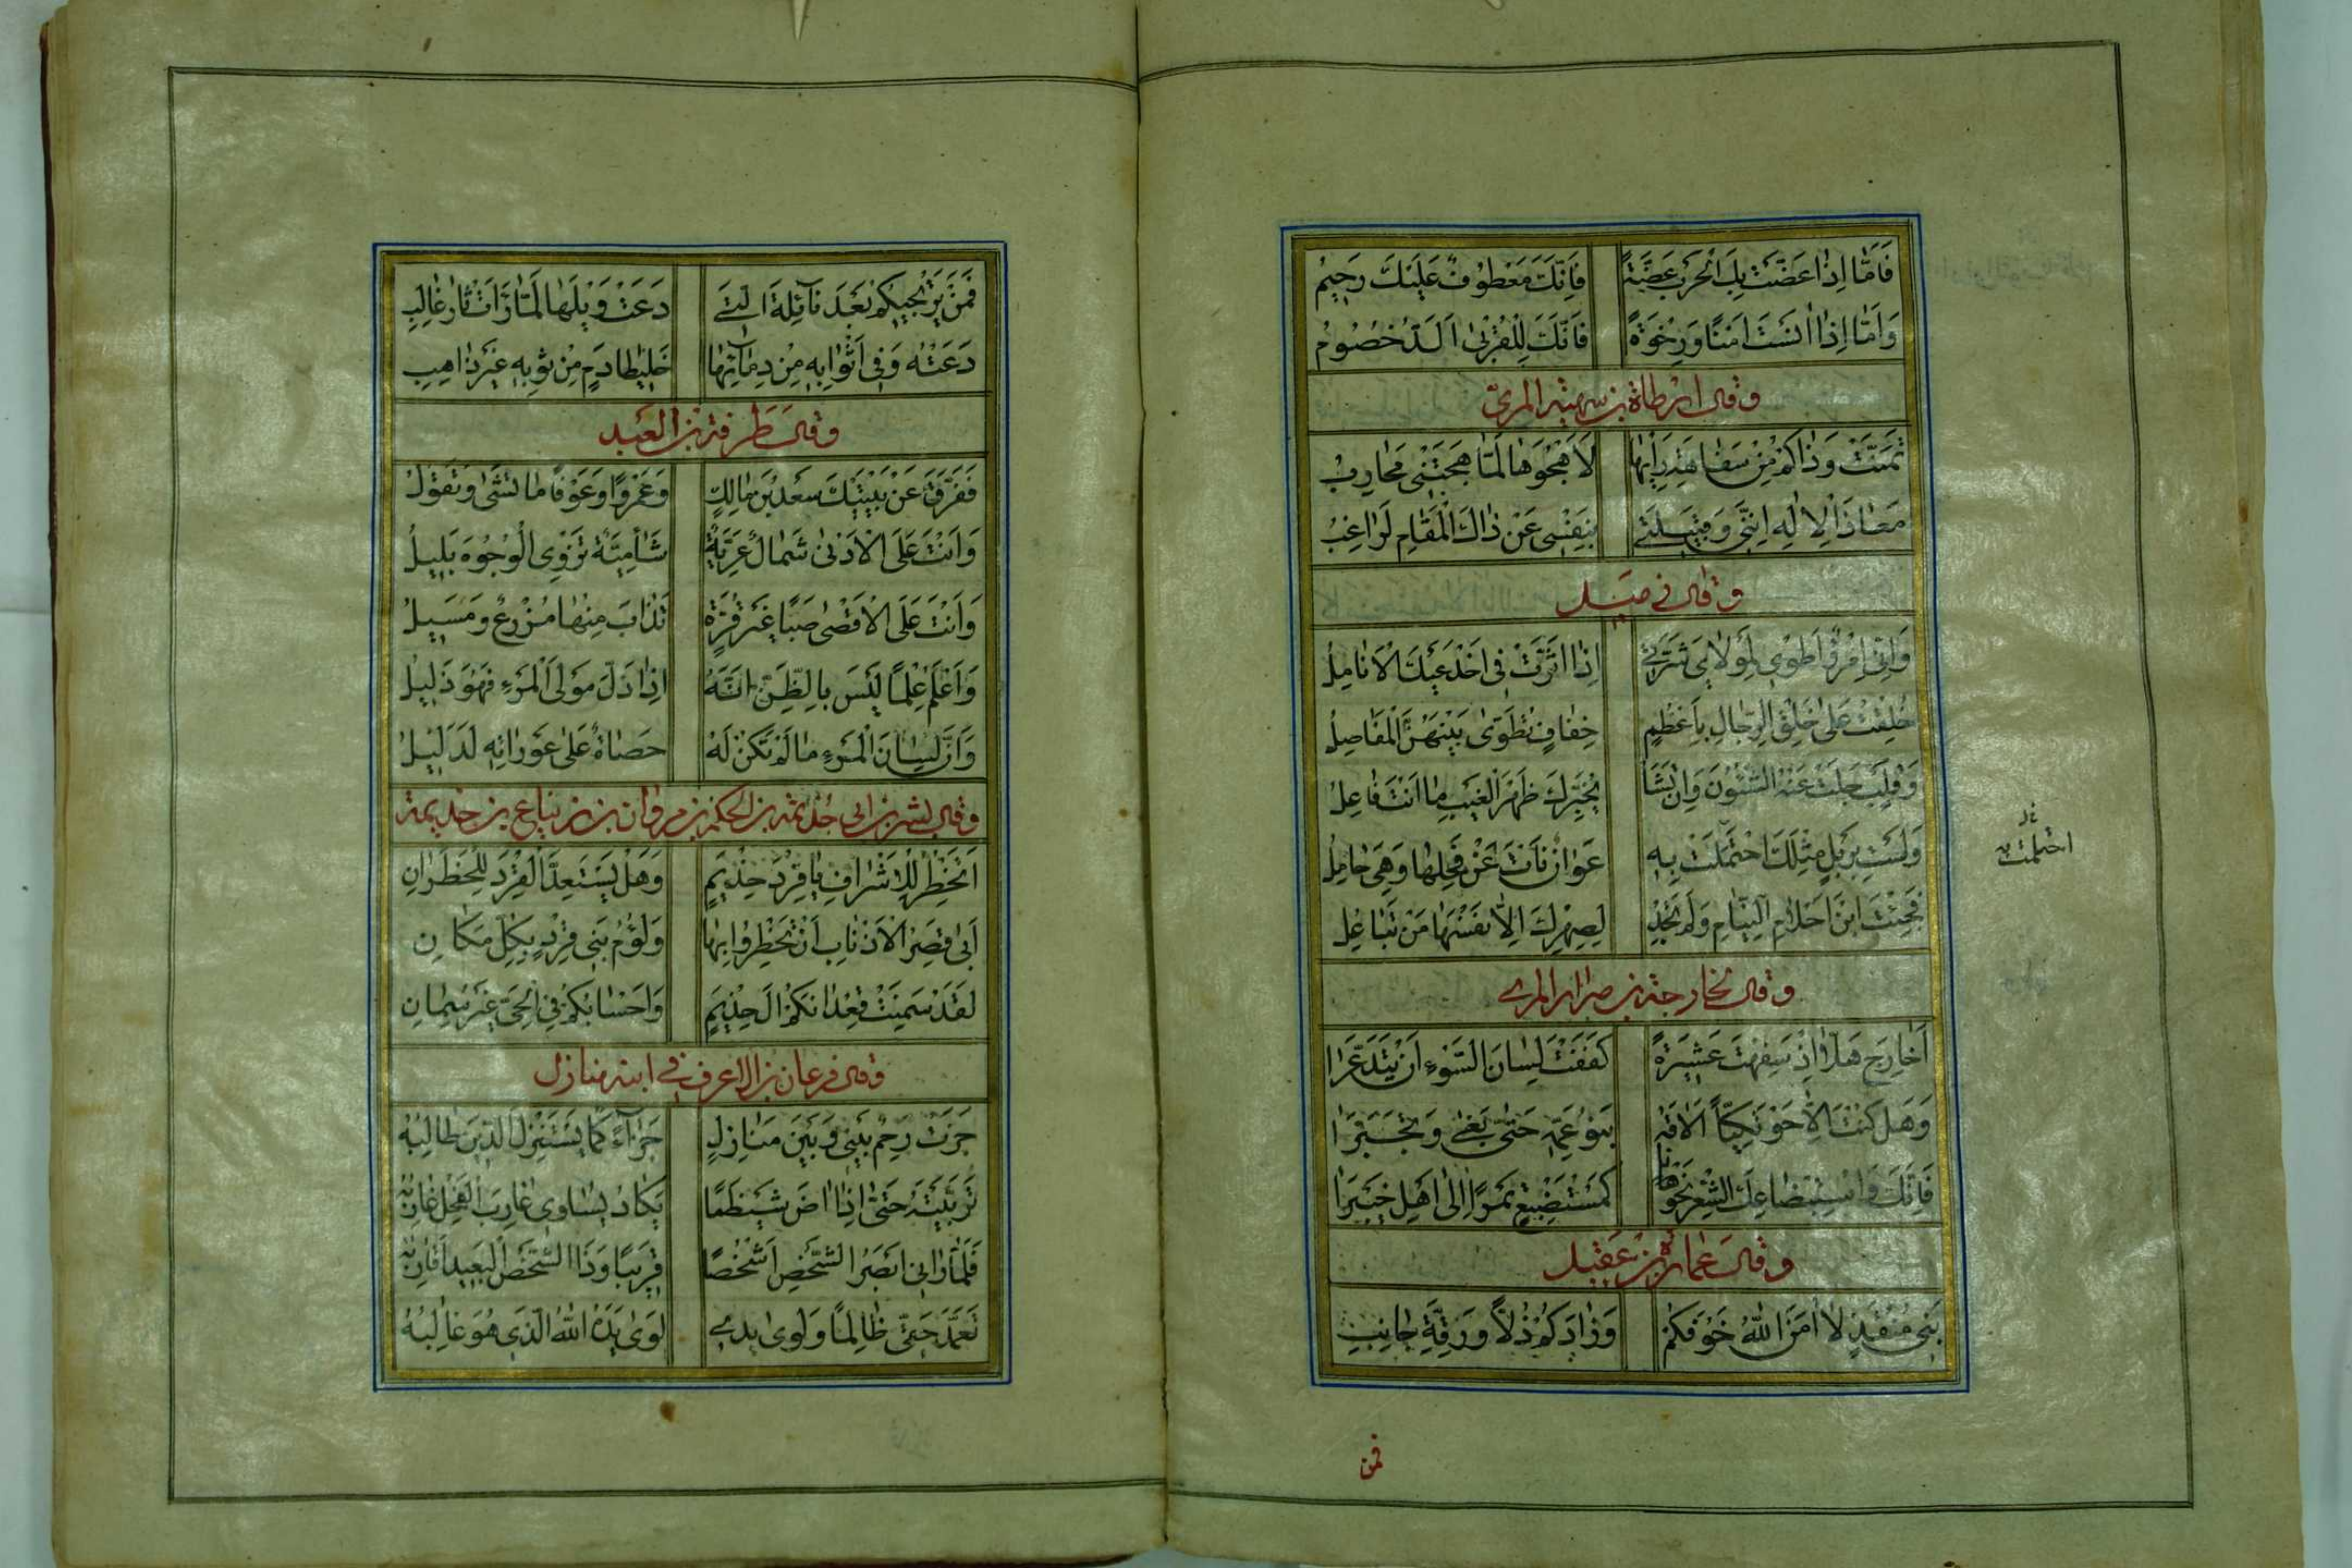 فَاَمَّا اِذَا عَضَّتْ بِكَ الْحَرْبُ عَضَّةً فَاِنَّكَ مَعْطُوْفٌ عَلَيْكَ رَحِيْمُ
وَاَمَّا اِذَا اٰنَسْتَ اَمْنًا وَرِخْوَةً فَاِنَّكَ لِلْقُرْبٰى اَلَدُّ خَصُوْمُ
وقال ارطاة بن سهية المرىّ
تَمَنَّتْ وَذَاكُمْ مِنْ سَفَاهَةِ رَأْيِهَا لِاَهْجُوَهَا لَمَّا هَجَتْنِىْ مُحَارِبُ
مَعَاذَ الْاِلٰهِ اِنَّنِىْ وَقَبِيْلَتِىْ بِنَفْسِىْ عَنْ ذَاكَ الْمَقَامِ لَرَاغِبُ
وقال فى
وَاِنِّىْ امْرُؤٌ اَطْوِىْ لِمَوْلَاىَ شَرَّتِىْ اِذَا اَثَّرَتْ فِىْ اَخْدَعَيْكَ الْاَنَامِلُ
خُلِقْتُ عَلٰى خَلْقِ الرِّجَالِ بِاَعْظُمٍ خِفَافٍ تَطَوّٰى بَيْنَهُنَّ الْمَفَاصِلُ
وَقَلْبٍ جَلَتْ عَنْهُ الشُّئُوْنَ وَاِنْ تَشَا يُخَبِّرْكَ ظَهْرَ الْغَيْبِ مَا اَنْتَ فَاعِلُ
وَلَسْتَ بِرَبْلٍ مِثْلِكَ احْتَمَلَتْ بِهِ عَوَانٌ نَأَتْ عَنْ فَحْلِهَا وَهِىَ حَامِلُ
احتلمت
فَجِئْتَ ابْنَ اَحْلَامِ النِّيَامِ وَلَمْ تَجِدْ لِصِهْرِكَ اِلَّا نَفْسَهَا مَنْ تُبَاعِلُ
وقال لخارجة بن ضرار المرى
اَخَارِجَ هَلَّا اِذْ سَفِهْتَ عَشِيْرَةً كَفَفْتَ لِسَانَ السَّوْءِ اَنْ يَتَدَعَّرَا
وَهَلْ كُنْتَ اِلَّا حَوْتَكِيًّا اَلَاقَهُ بَنُوْ عَمِّهِ حَتّٰى بَغٰى وَتَجَبَّرَا
فَاِنَّكَ وَاسْتِبْضَاعَكَ الشِّعْرَ نَحْوَنَا كَمُسْتَبْضِعٍ تَمْرًا اِلٰى اَهْلِ خَيْبَرَا
وقال عمارة بن عقيل
بَنِىْ مُنْقِذٍ لَا اٰمَنَ اللّٰهُ خَوْفَكُمْ وَزَادَكُمْ ذُلًّا وَرِقَّةَ جَانِبِ
فمن
فَمَنْ يَرْتَجِيْكُمْ بَعْدَ نَآئِلَةَ الَّتِىْ دَعَتْ وَيْلَهَا لَمَّا رَأَتْ ثَارَ غَالِبِ
دَعَتْهُ وَفِىْ اَثْوَابِهِ مِنْ دِمَآئِهَا خَلِيْطَا دَمٍ مِنْ ثَوْبِهِ غَيْرَ ذَاهِبِ
وقال طرفة بن العبد
فَفَرَّقَ عَنْ بَيْتَيْكَ سَعْدَ بْنَ مَالِكٍ وَعَمْرًوا وَعَوْفًا مَا تَشِىْ وَتَقُوْلُ
وَاَنْتَ عَلَى الْاَدْنٰى شَمَالٌ عَرِيَّةٌ شَاٰمِيَّةٌ تَزْوِى الْوُجُوْهَ بَلِيْلُ
وَاَنْتَ عَلَى الْاَقْصٰى صَبًا غَيْرُ قُرَّةٍ تَذَاءَبَ مِنْهَا مُرْزِعٌ وَمُسِيْلُ
وَاَعْلَمُ عِلْمًا لَيْسَ بِالظَّنِّ اَنَّهُ اِذَا ذَلَّ مَوْلَى الْمَرْءِ فَهُوَ ذَلِيْلُ
وَاِنَّ لِسَانَ الْمَرْءِ مَا لَمْ تَكُنْ لَهُ حَصَاةٌ عَلٰى عَوْرَاتِهِ لَدَلِيْلُ
وقال بشر بن ابى جذيمة بن الحكم بن مروان بن زنباع بن جذيمة
اَتَخْطِرُ لِلْاَشْرَافِ يَا قِرْدَ حِذْيَمٍ وَهَلْ يَسْتَعِدُّ الْقِرْدُ لِلْخَطَرَانِ
اَبٰى قِصَرُ الْاَذْنَابِ اَنْ تَخْطِرُوْا بِهَا وَلُؤْمُ بَنِىْ قِرْدٍ بِكُلِّ مَكَانِ
لَقَدْ سَمِنَتْ قِعْدَانُكُمْ اٰلَ حِذْيَمٍ وَاَحْسَابُكُمْ فِى الْحَىِّ غَيْرُ سِمَانِ
وقال فرعان بن الاعرف فى ابنه منازل
جَزَتْ رَحِمٌ بَيْنِىْ وَبَيْنَ مَنَازِلٍ جَزَآءً كَمَا يَسْتَنْزِلُ الدَّيْنَ طَالِبُهُ
تَرَبَّيْتُهُ حَتّٰى اِذَا اٰضَ شَيْظَمًا يَكَادُ يُسَاوِىْ غَارِبَ الْفَحْلِ غَارِبُهُ
فَلَمَّا رَاٰنِىْ اُبْصِرُ الشَّخْصَ اَشْخُصًا قَرِيْبًا وَذَا الشَّخْصِ الْبَعِيْدِ اُقَارِبُهُ
تَعَمَّدَ حَقِّىْ ظَالِمًا وَلَوٰى يَدِىْ لَوٰى يَدَهُ اللّٰهُ الَّذِىْ هُوَ غَالِبُهُ